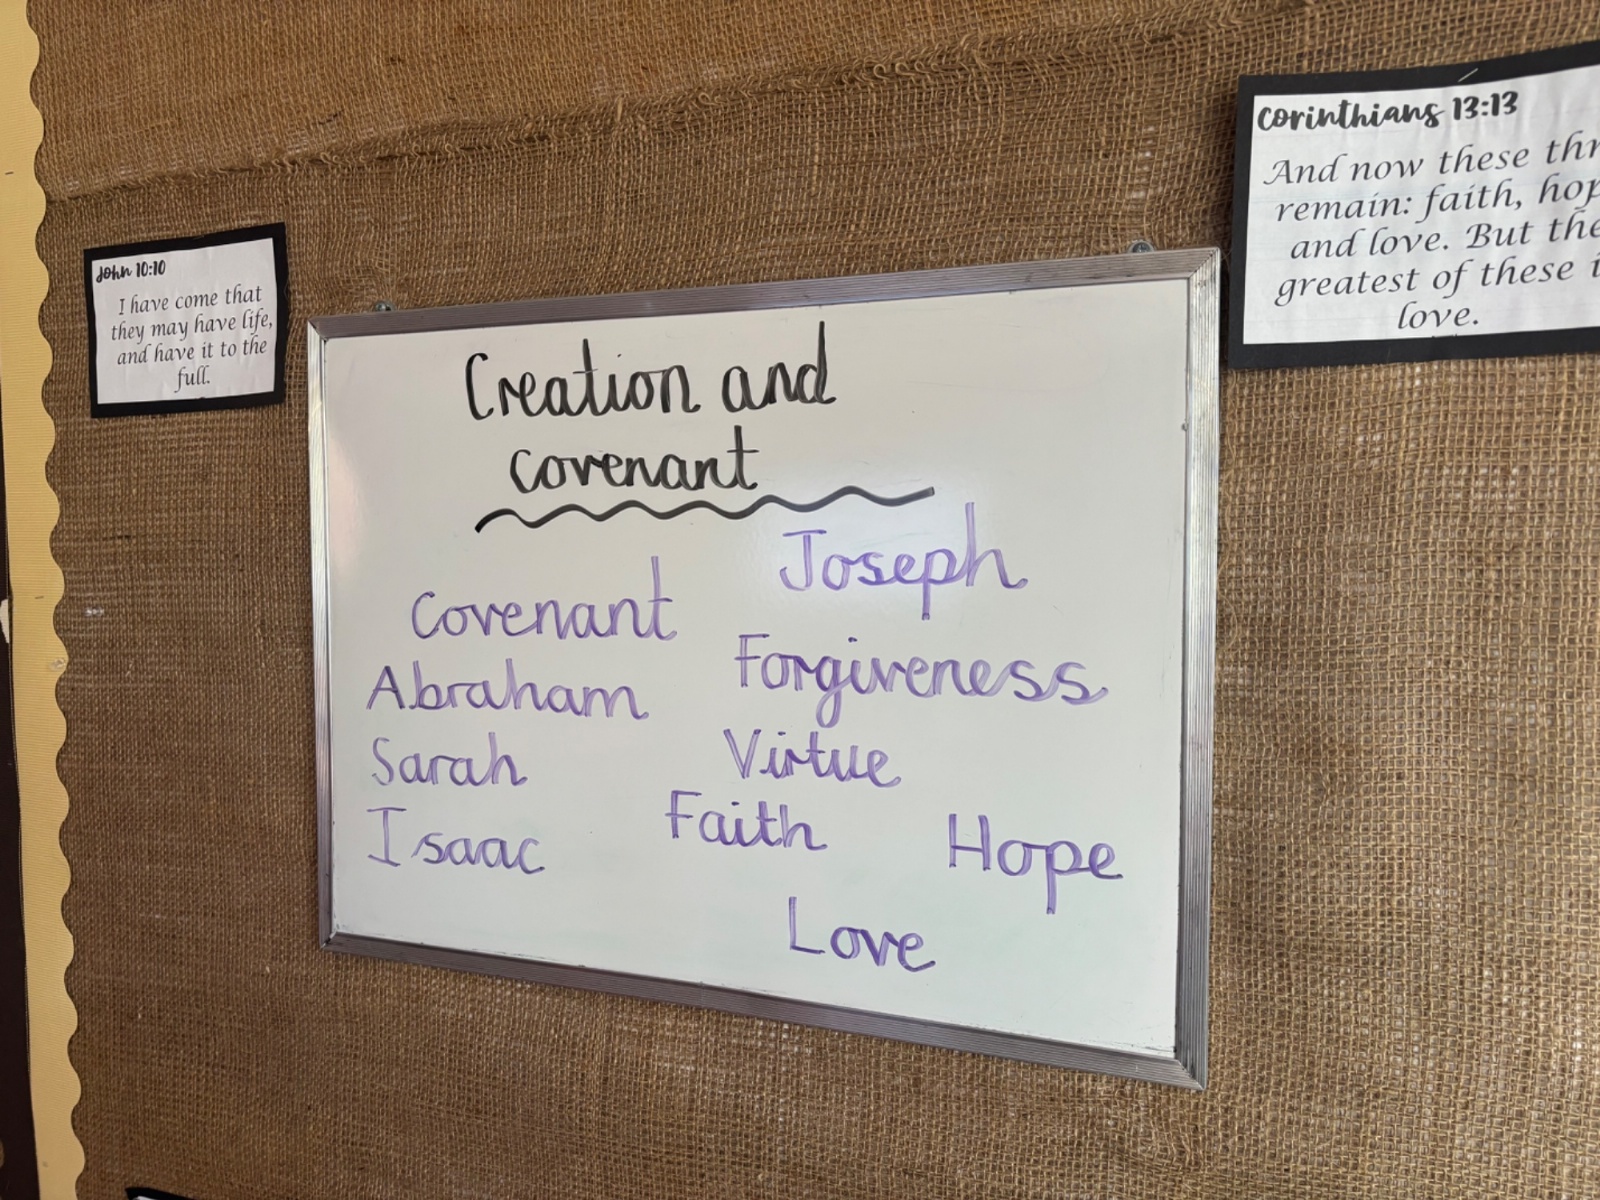 John 10:10
I have come that
they may have life,
and have it to the
full.
Creation and
covenant
Covenant
Abraham
Sarah
Isaac
Joseph
Forgiveness
Virtue
Faith
Hope
Love
Corinthians 13:13
And now these thr
remain: faith, hop
and love. But the
greatest of these i
love.